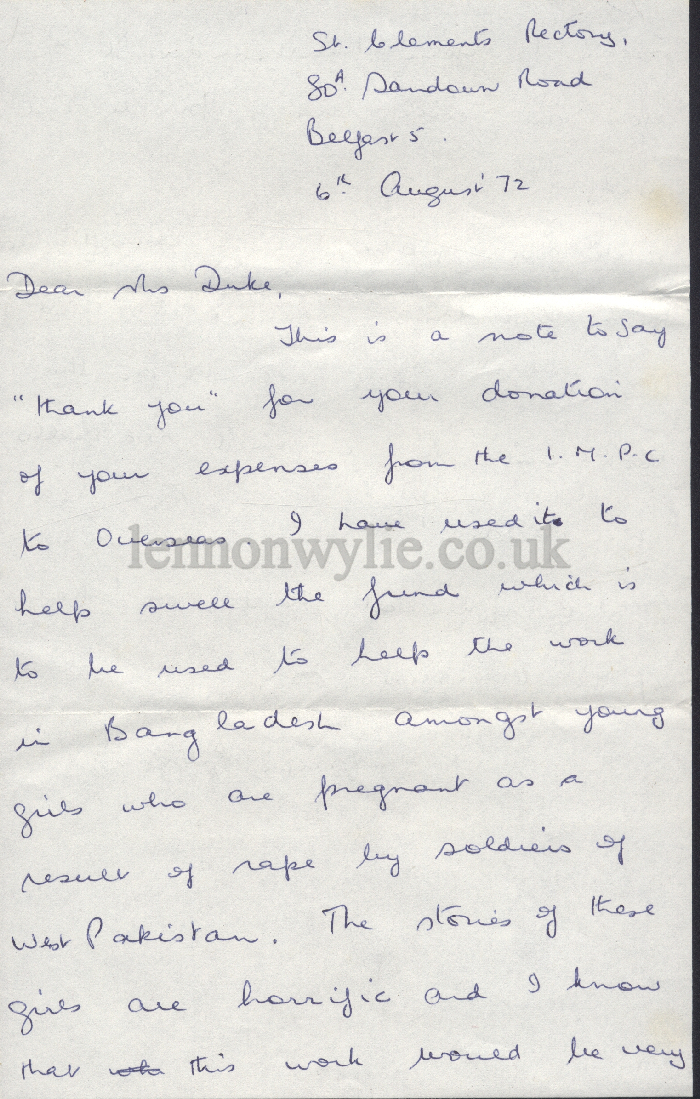 St. Clements Rectory,
80A. Sandown Road
Belfast 5.
6th August '72
Dear Mrs Duke,
This is a note to say
"thank you" for your donation
of your expenses from the I.M.P.C
to Overseas. I have used it to
lennonwylie.co.uk
help swell the fund which is
to be used to help the work
in Bangladesh amongst young
girls who are pregnant as a
result of rape by soldiers of
West Pakistan. The stories of these
girls are horrific and I know
that this work would be very